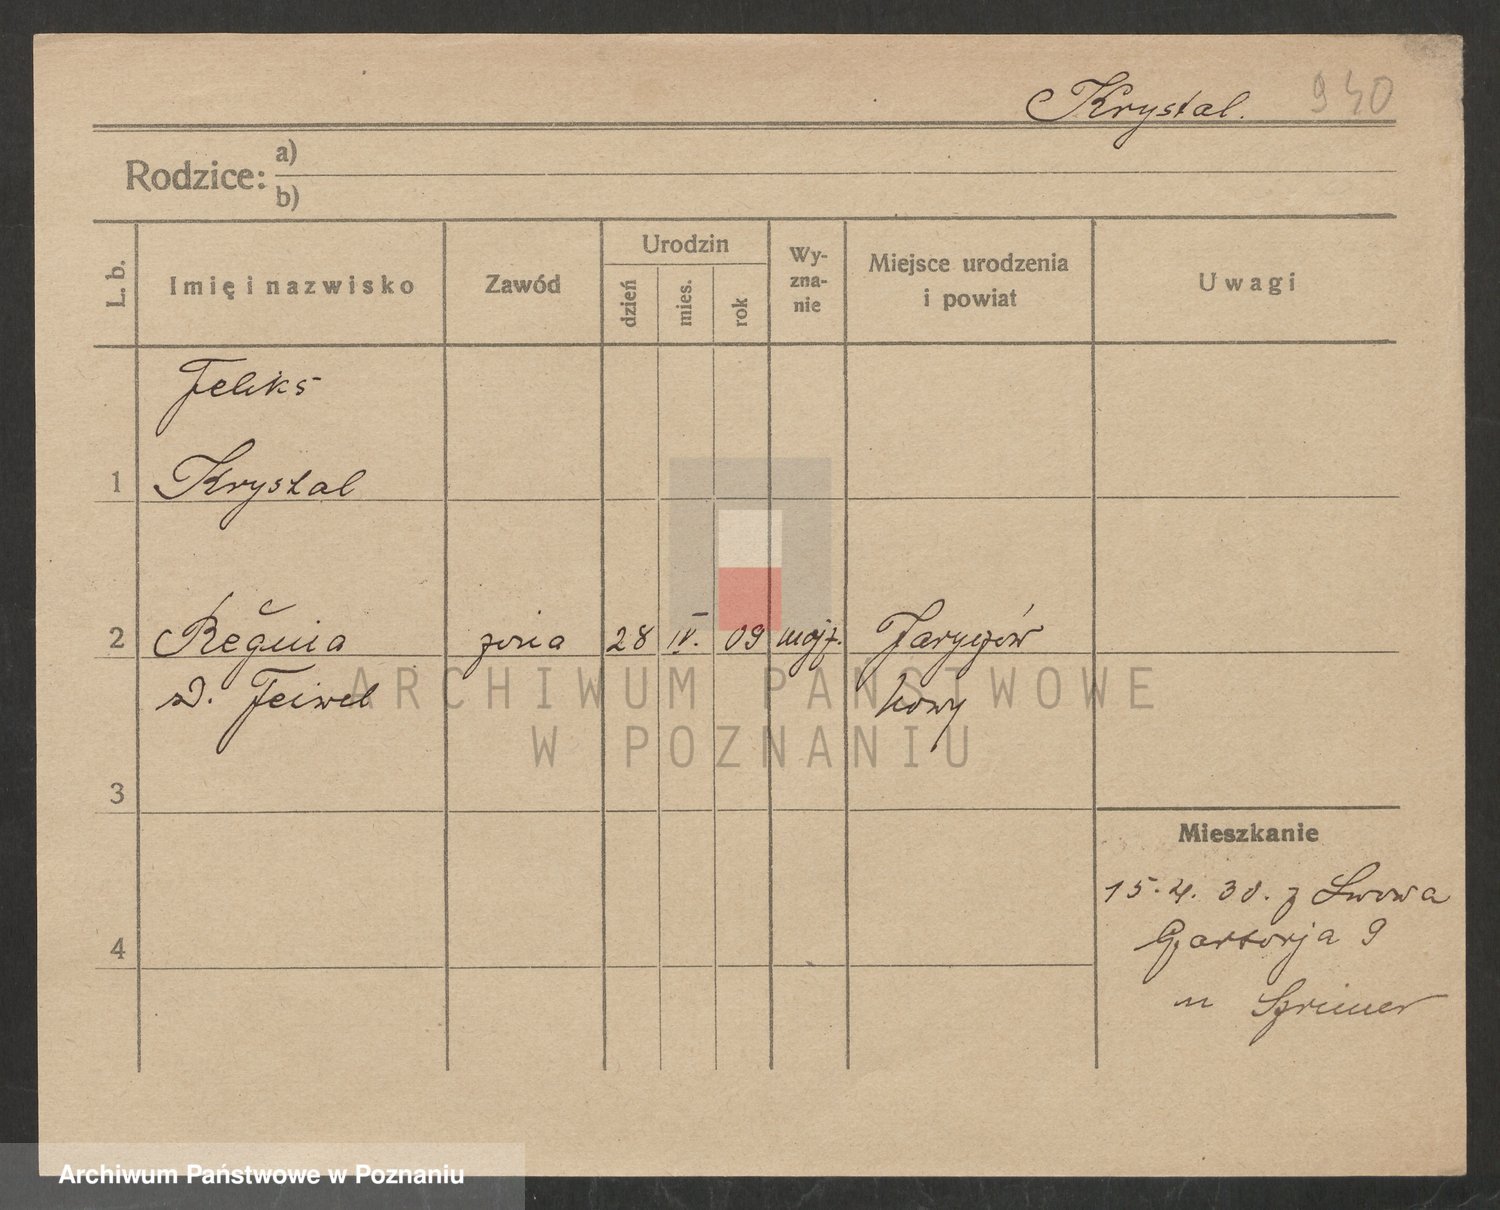 Krystal. 940
Rodzice: a)
b)
L. b. Imię i nazwisko Zawód Urodzin dzień mies. rok Wy-zna-nie Miejsce urodzenia i powiat Uwagi
Feliks
1 Krystal
2 Regina żona 28 IV. 09 mojż. Jaryczów
d. Feiwel nowy
3
Mieszkanie
15.4. 30. z Lwowa
4 9
u
ARCHIWUM PAŃSTWOWE
W POZNANIU
Archiwum Państwowe w Poznaniu